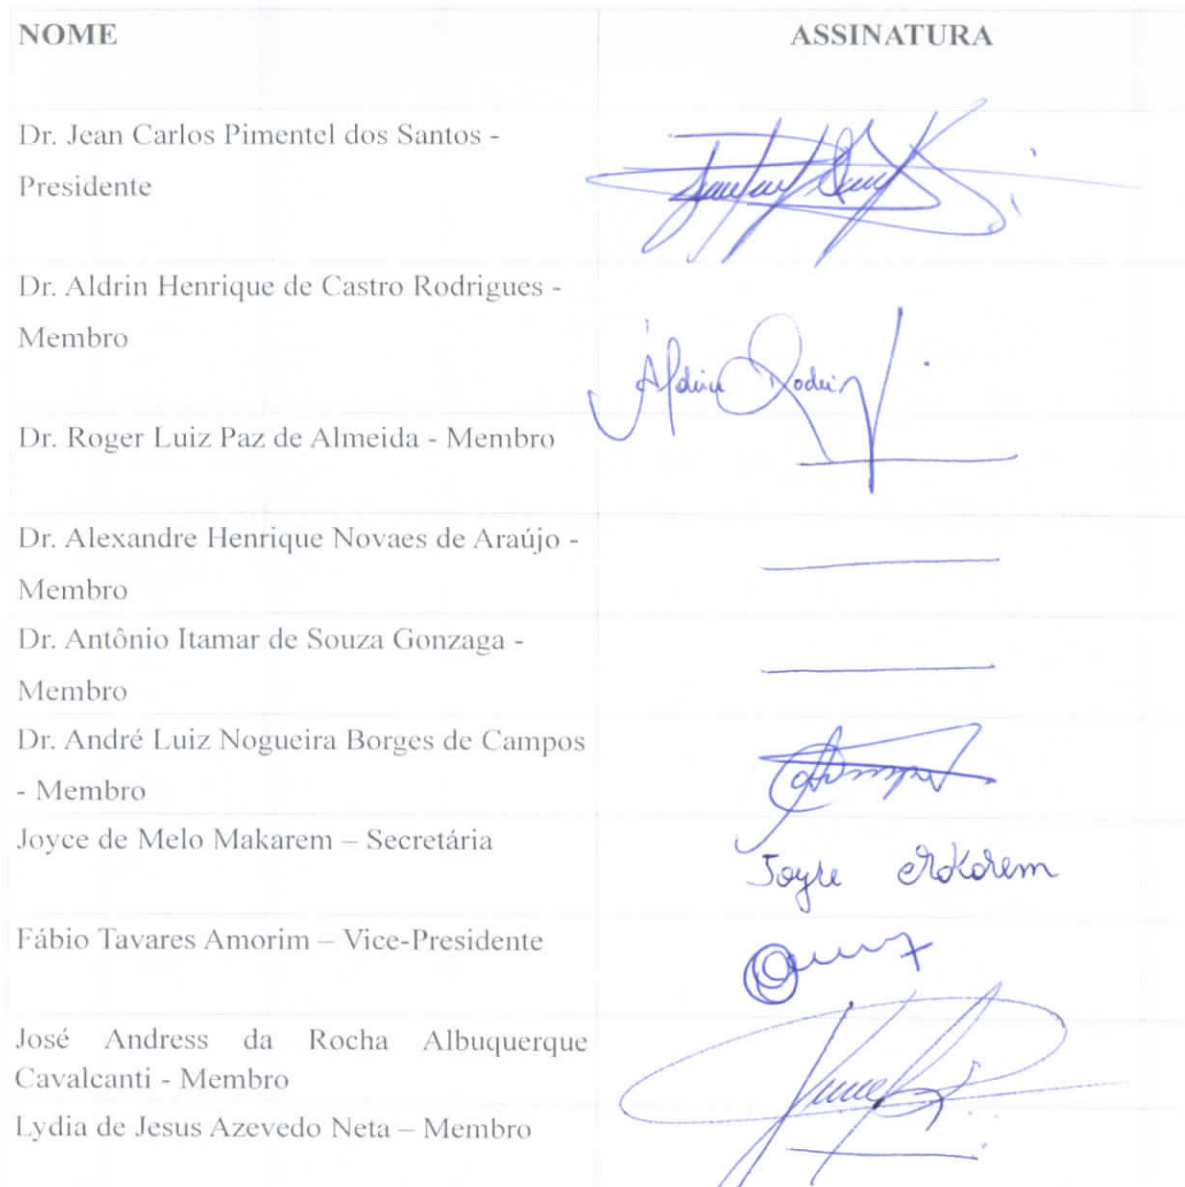 NOME ASSINATURA
Dr. Jean Carlos Pimentel dos Santos -
Presidente
Dr. Aldrin Henrique de Castro Rodrigues -
Membro
Aldrin Rodrig
Dr. Roger Luiz Paz de Almeida - Membro
Dr. Alexandre Henrique Novaes de Araújo -
Membro
Dr. Antônio Itamar de Souza Gonzaga -
Membro
Dr. André Luiz Nogueira Borges de Campos
- Membro
Joyce de Melo Makarem – Secretária
Joyce Makarem
Fábio Tavares Amorim – Vice-Presidente
José Andress da Rocha Albuquerque
Cavalcanti - Membro
Lydia de Jesus Azevedo Neta – Membro